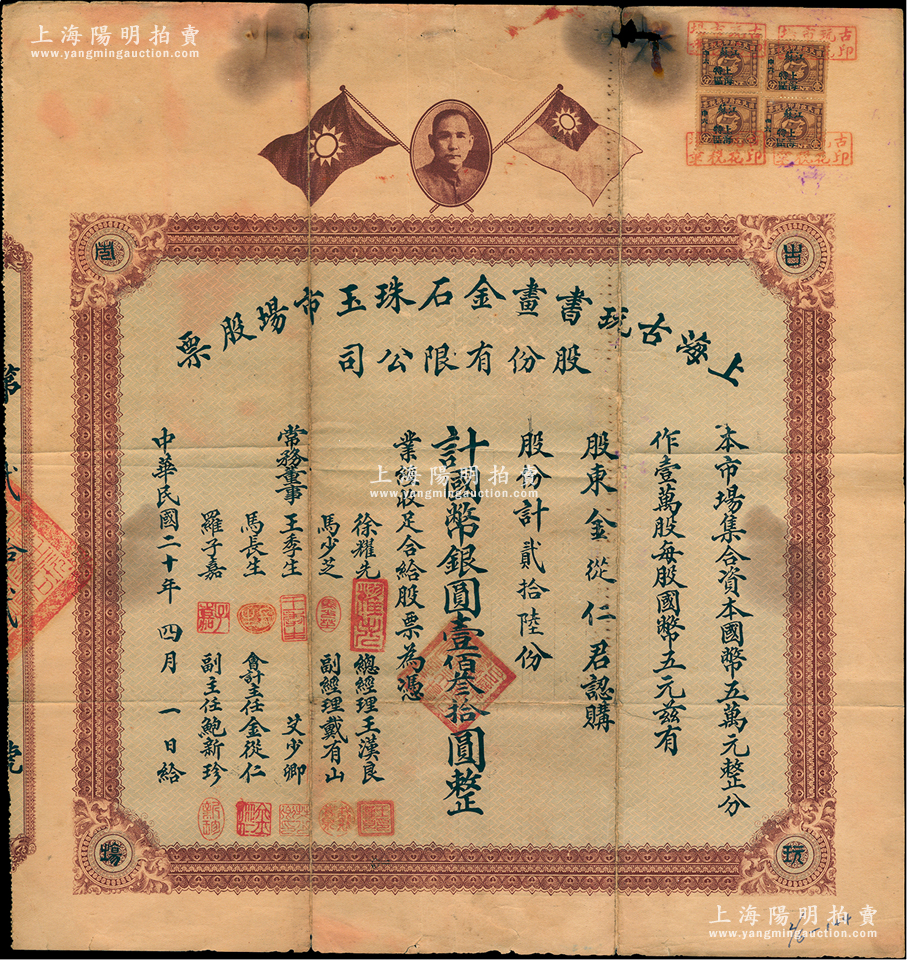 上海陽明拍賣
www.yangmingauction.com
上海古玩書畫金石珠玉市場股票
股份有限公司
本市場集合資本國幣五萬元整分
作壹萬股每股國幣五元茲有
股東金從仁君認購
股份計貳拾陸份
計國幣銀圓壹佰叁拾圓整
業經收足合給股票為憑
徐耀先
馬少芝
常務董事
王季生
馬長生
羅子嘉
總經理王漢良
副經理戴有山
艾少卿
會計主任金從仁
副主任鮑新珍
中華民國二十年四月一日給
古
玩
市
場
第
號
上海陽明拍賣
www.yangmingauction.com
上海陽明拍賣
www.yangmingauction.com